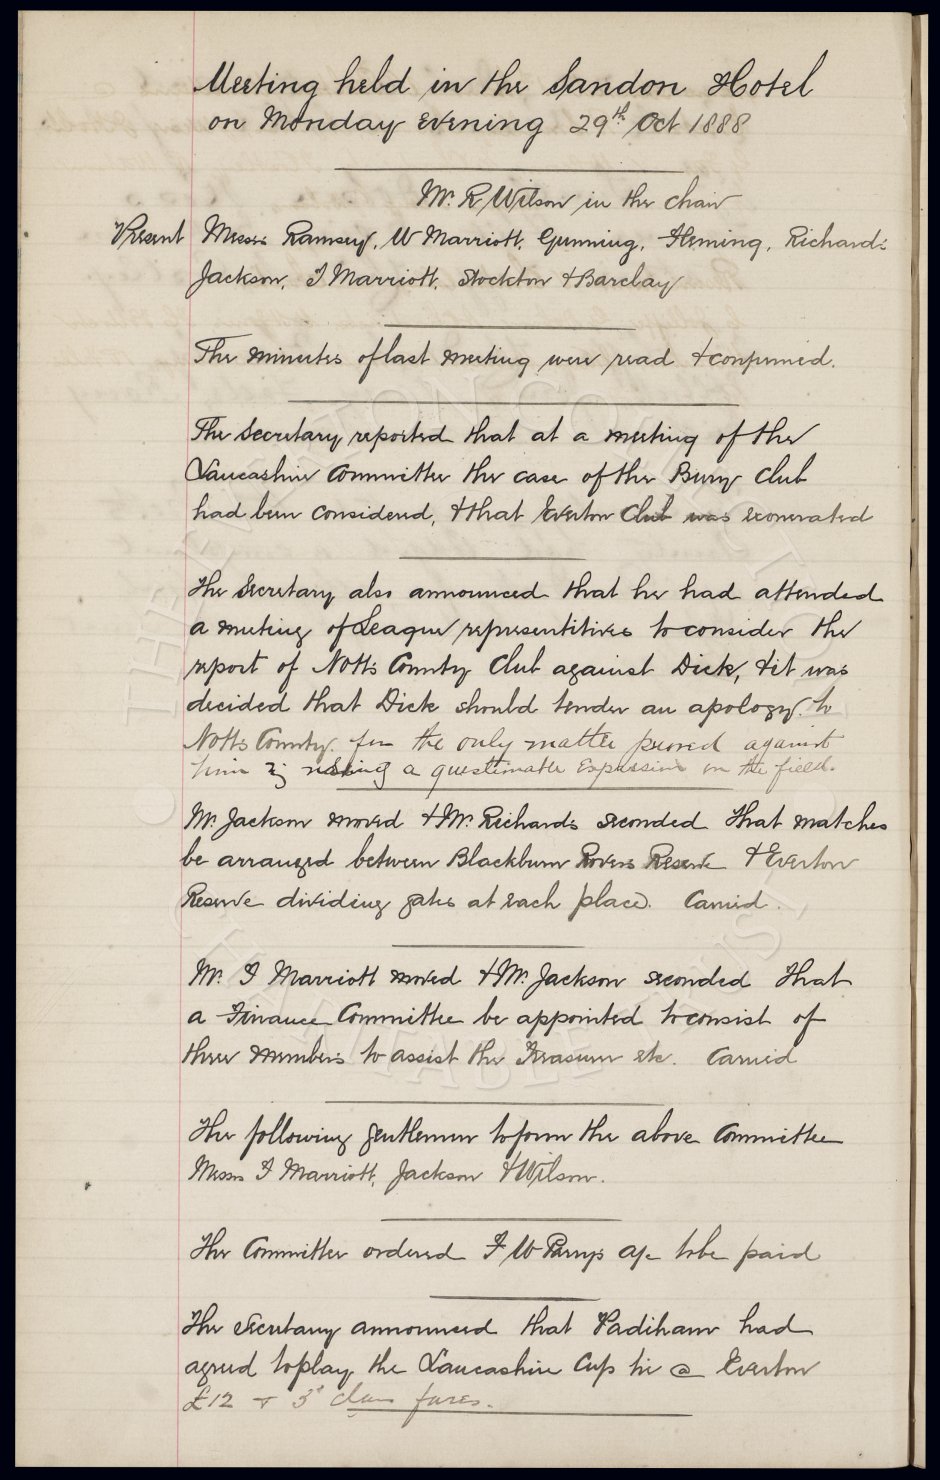 Meeting held in the Sandon Hotel
on Monday evening 29th Oct 1888
Mr. R Wilson in the chair
Present Messrs Ramsey, W Marriott, Gunning, Fleming, Richards
Jackson, J Marriott, Stockton & Barclay
The minutes of last meeting were read & confirmed.
The Secretary reported that at a meeting of the
Lancashire Committee the case of the Bury Club
had been considered, & that Everton Club was exonerated
The Secretary also announced that he had attended
a meeting of League representitives to consider the
report of Notts County Club against Dick, & it was
decided that Dick should tender an apology to
Notts County. for the only matter proved against
him is using a questionable expression on the field.
Mr. Jackson moved & Mr. Richards seconded that matches
be arranged between Blackburn Rovers Reserve & Everton
Reserve dividing gates at each place. Carried.
Mr. J Marriott moved & Mr. Jackson seconded that
a Finance Committee be appointed to consist of
three members to assist the Treasurer etc. Carried
The following gentlemen to form the above Committee
Messrs J Marriott, Jackson & Wilson.
The Committee ordered J W Parry's a/c to be paid
The Secretary announced that Padiham had
agreed to play the Lancashire Cup tie @ Everton
£12 & 3d class fares.